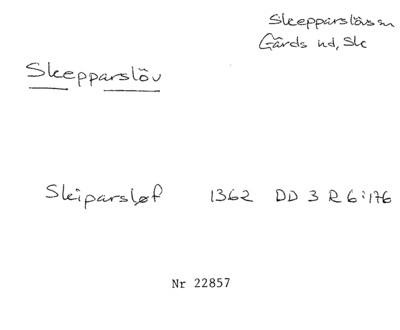 Skepparslövs sn
Gärds hd, Sk
Skepparslöv
Skiparsløf 1362 DD 3 R 6:176
Nr 22857